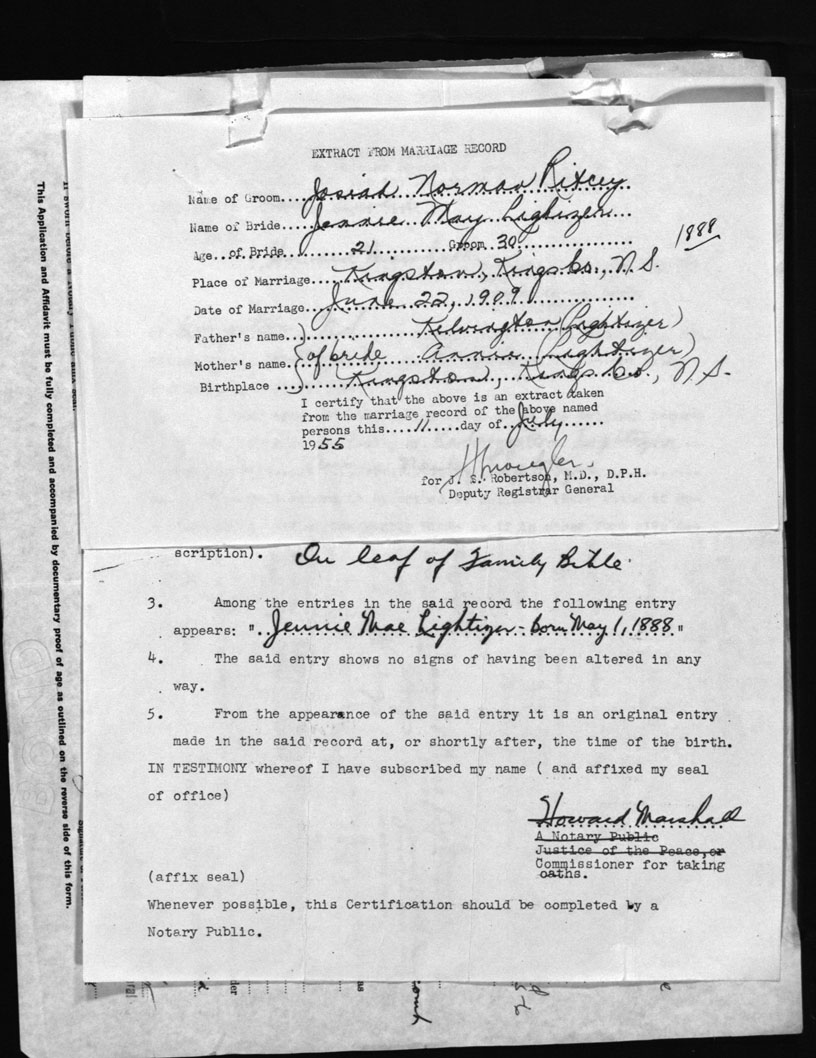 EXTRACT FROM MARRIAGE RECORD
Name of Groom....Josiah Norman Rixcey
Name of Bride....Jennie May Lightizer...
Age...of Bride........21..........Groom 30................ 1888
Place of Marriage...Kingston, Kings Co., N.S.
Date of Marriage....June 22, 1909
Father's name...) Kelvington (Lightizer)
Mother's name...{ of bride Annie (Lightizer)
Birthplace ....) Kingston, Kings Co., N.S.
I certify that the above is an extract taken
from the marriage record of the above named
persons this....11.....day of..July......
1955
for J. S. Robertson, M.D., D.P.H.
Deputy Registrar General
scription). On leaf of Family Bible
3. Among the entries in the said record the following entry
appears: "..Jennie Mae Lightizer - born May 1, 1888"
4. The said entry shows no signs of having been altered in any
way.
5. From the appearance of the said entry it is an original entry
made in the said record at, or shortly after, the time of the birth.
IN TESTIMONY whereof I have subscribed my name ( and affixed my seal
of office)
Howard Marshall
A Notary Public
Justice of the Peace, or
Commissioner for taking
oaths.
(affix seal)
Whenever possible, this Certification should be completed by a
Notary Public.
This Application and Affidavit must be fully completed and accompanied by documentary proof of age as outlined on the reverse side of this form.